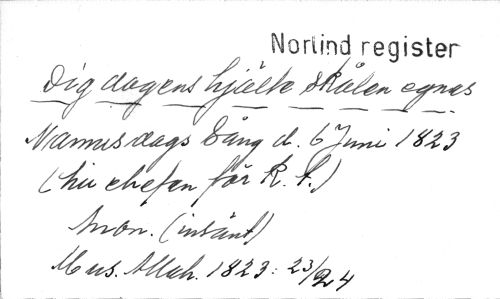 Norlind register
Dig dagens hjälte skålen egnas
Namnsdags Sång d. 6 Juni 1823
(till chefen för K. f.)
Anon. (insänt)
Mus. Allah. 1823: 23/24